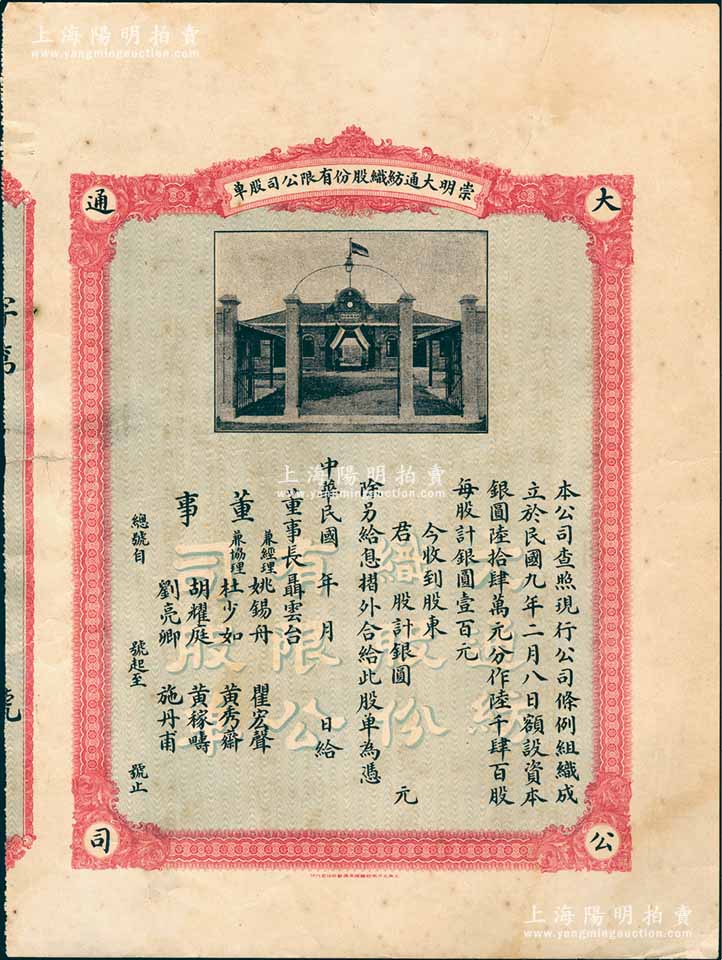 上海陽明拍賣
www.yangmingauction.com
崇明大通紡織股份有限公司股單
大
通
公
司
本公司查照現行公司條例組織成
立於民國九年二月八日額設資本
銀圓陸拾肆萬元分作陸千肆百股
每股計銀圓壹百元
今收到股東
君 股計銀圓 元
除另給息摺外合給此股单為憑
中華民國 年 月 日給
董事長聶雲台
兼經理姚錫舟 瞿宏聲
董 兼協理杜少如 黃秀齋
胡耀庭 黃稼疇
事 劉亮卿 施丹甫
總號自 號起至 號止
大通紡織股份有限公司股單
字第
號
上海陽明拍賣
www.yangmingauction.com
上海陽明拍賣
www.yangmingauction.com